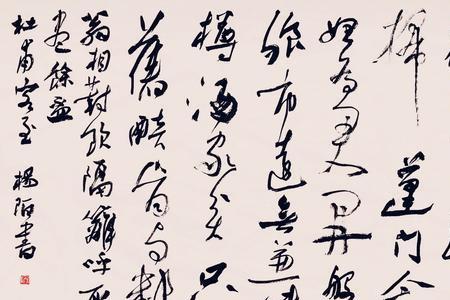 掃蓬門今
始為君開盤
飧市遠無兼
樽酒家貧只
舊醅肯與鄰
翁相對飲隔籬呼取
盡餘盃
杜甫客至 楊書